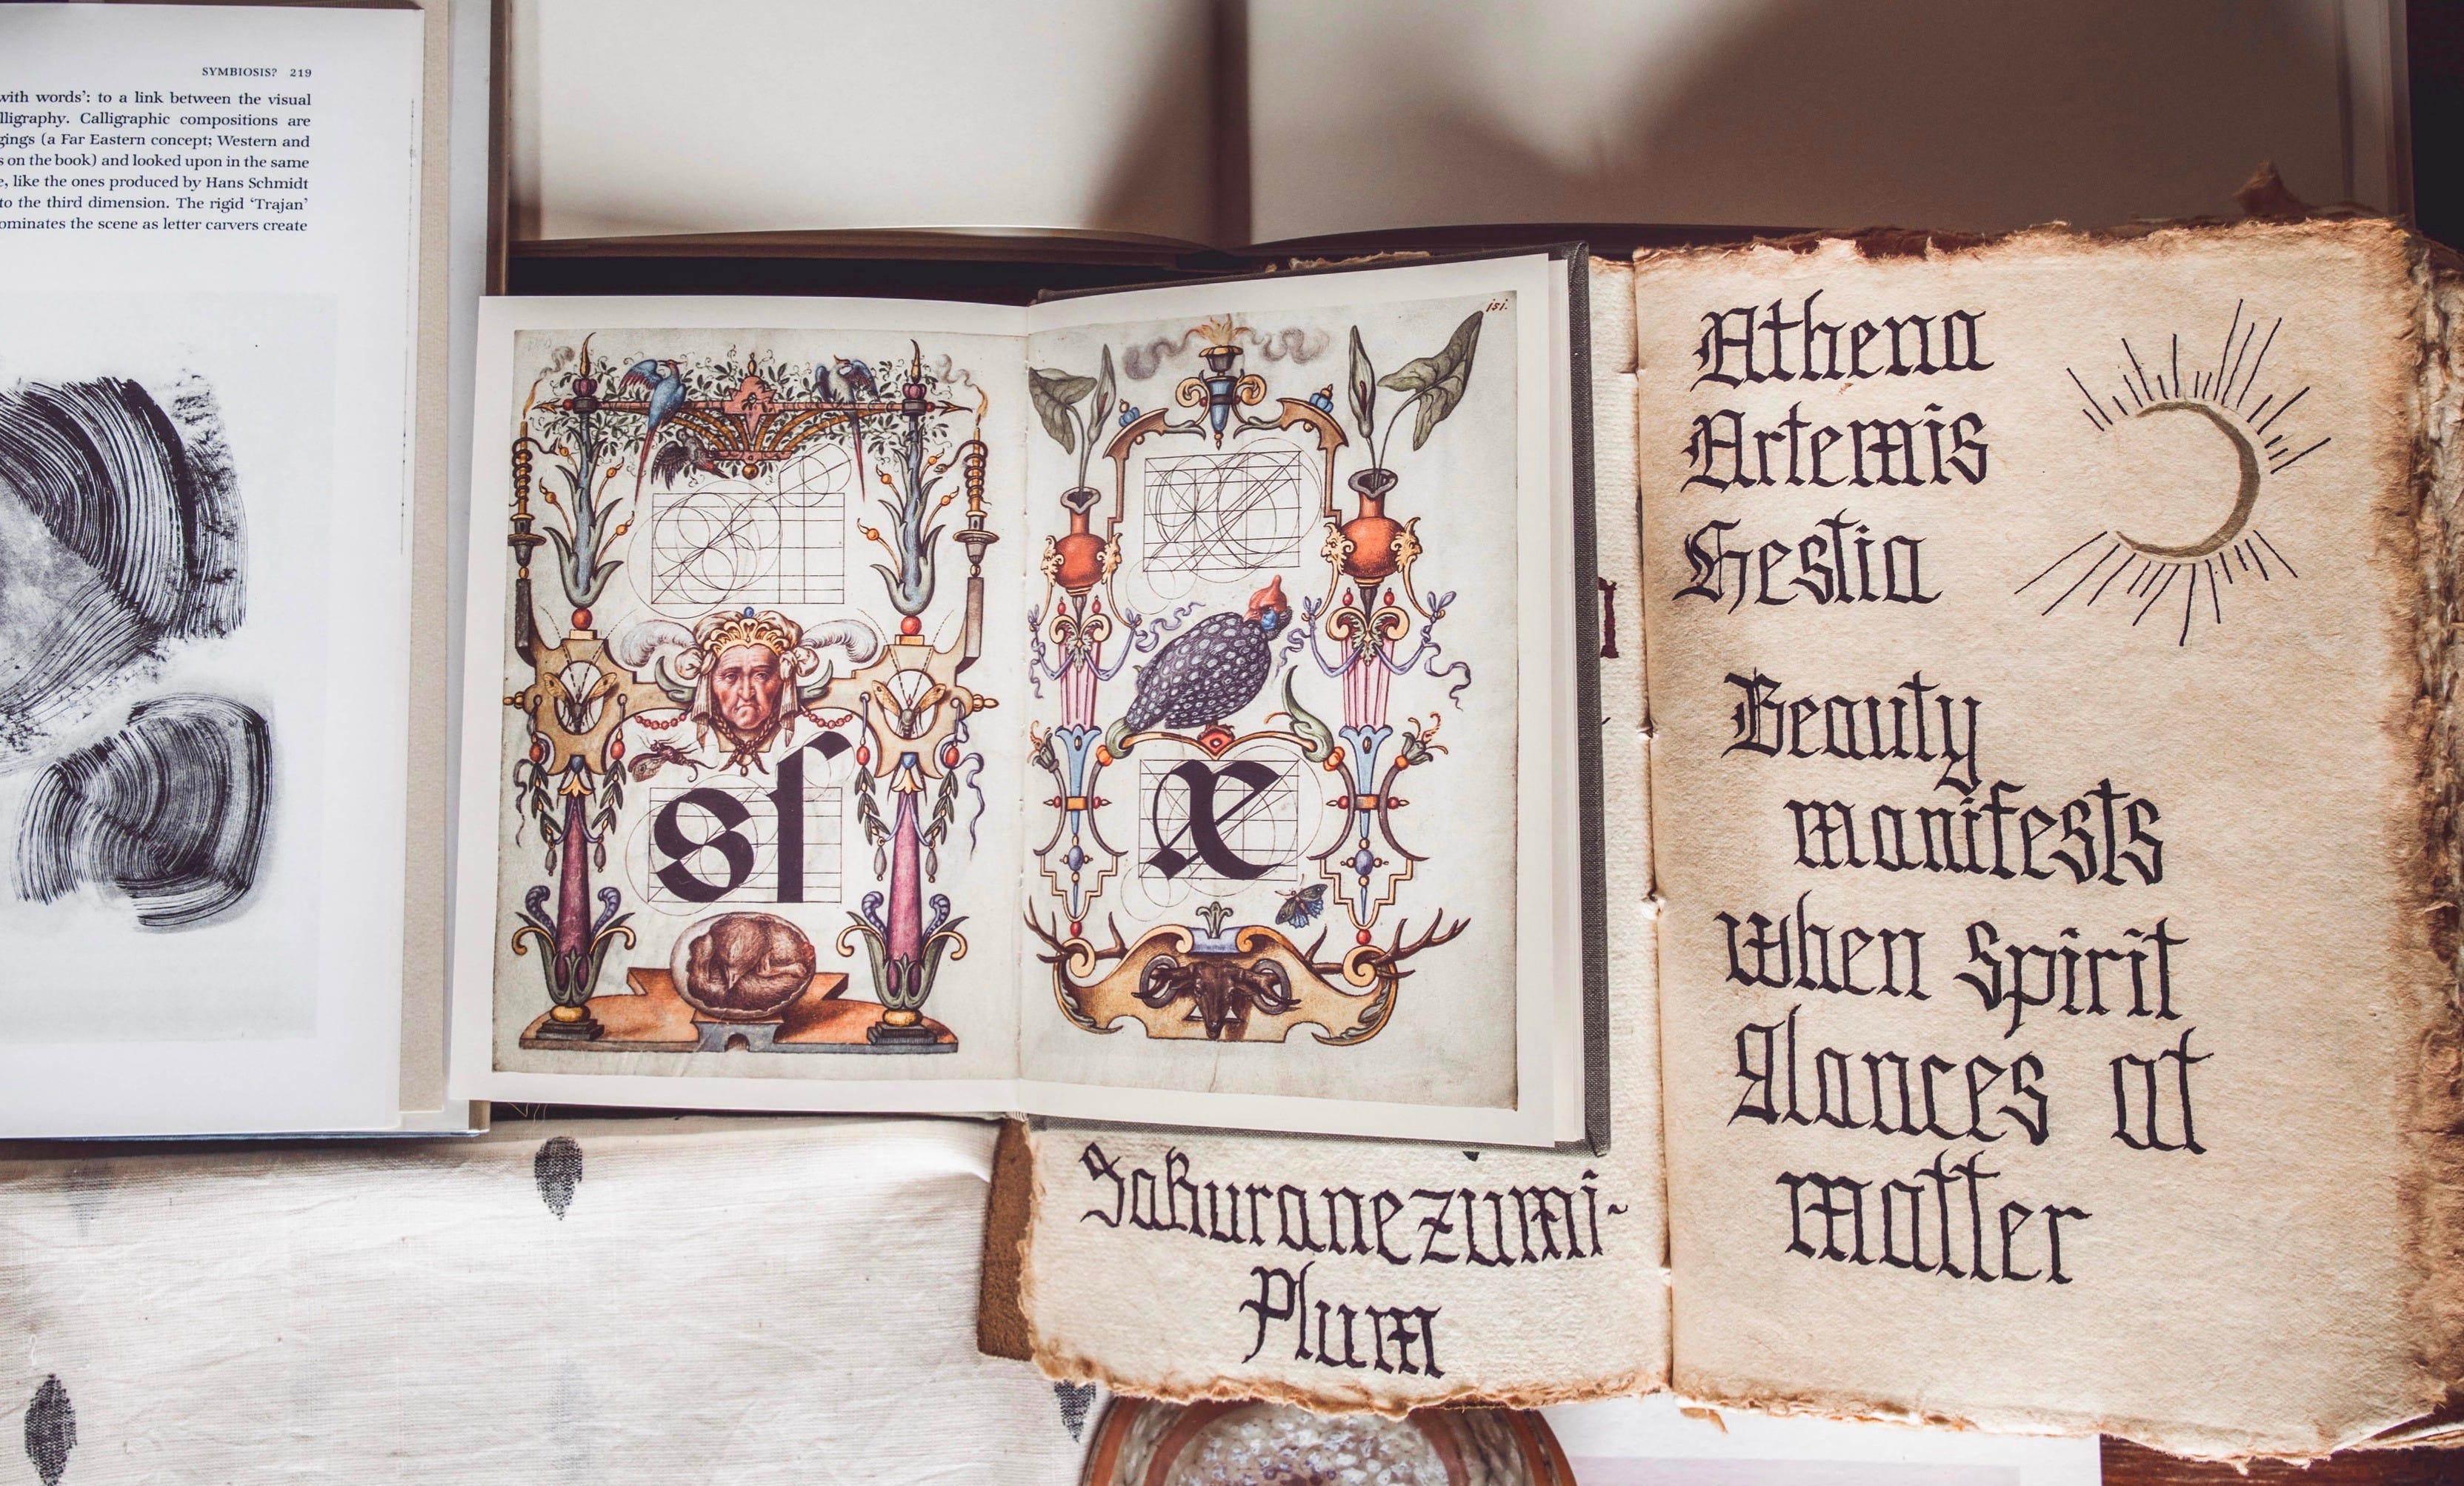 SYMBIOSIS? 219
with words’: to a link between the visual
lligraphy. Calligraphic compositions are
gings (a Far Eastern concept; Western and
s on the book) and looked upon in the same
e, like the ones produced by Hans Schmidt
to the third dimension. The rigid ‘Trajan’
ominates the scene as letter carvers create
sſ
æ
Sakuranezumi-
Plum
Athena
Artemis
Hestia
Beauty
manifests
When Spirit
glances at
matter